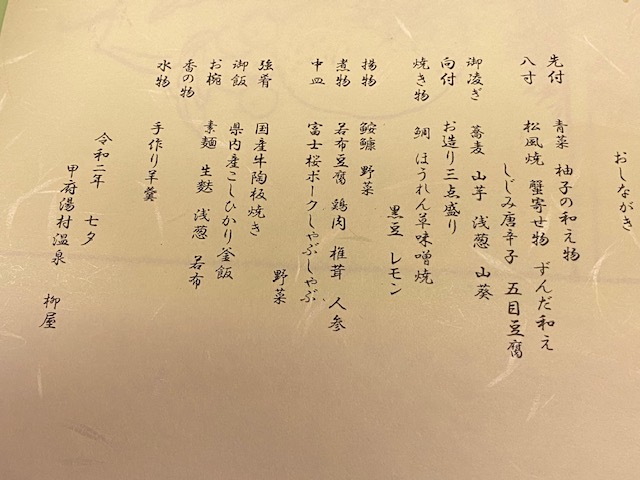 おしながき
先付　青菜　柚子の和え物
八寸　松風焼　蟹寄せ物　ずんだ和え
しじみ唐辛子　五目豆腐
御凌ぎ　蕎麦　山芋　浅葱　山葵
向付　お造り三点盛り
焼き物　鯛　ほうれん草味噌焼
黒豆　レモン
揚物　鮟鱇　野菜
煮物　若布豆腐　鶏肉　椎茸　人参
中皿　富士桜ポークしゃぶしゃぶ
野菜
強肴　国産牛陶板焼き
御飯　県内産こしひかり釜飯
お椀　素麺　生麩　浅葱　若布
香の物
水物　手作り羊羹
令和二年　七夕
甲府湯村温泉　柳屋